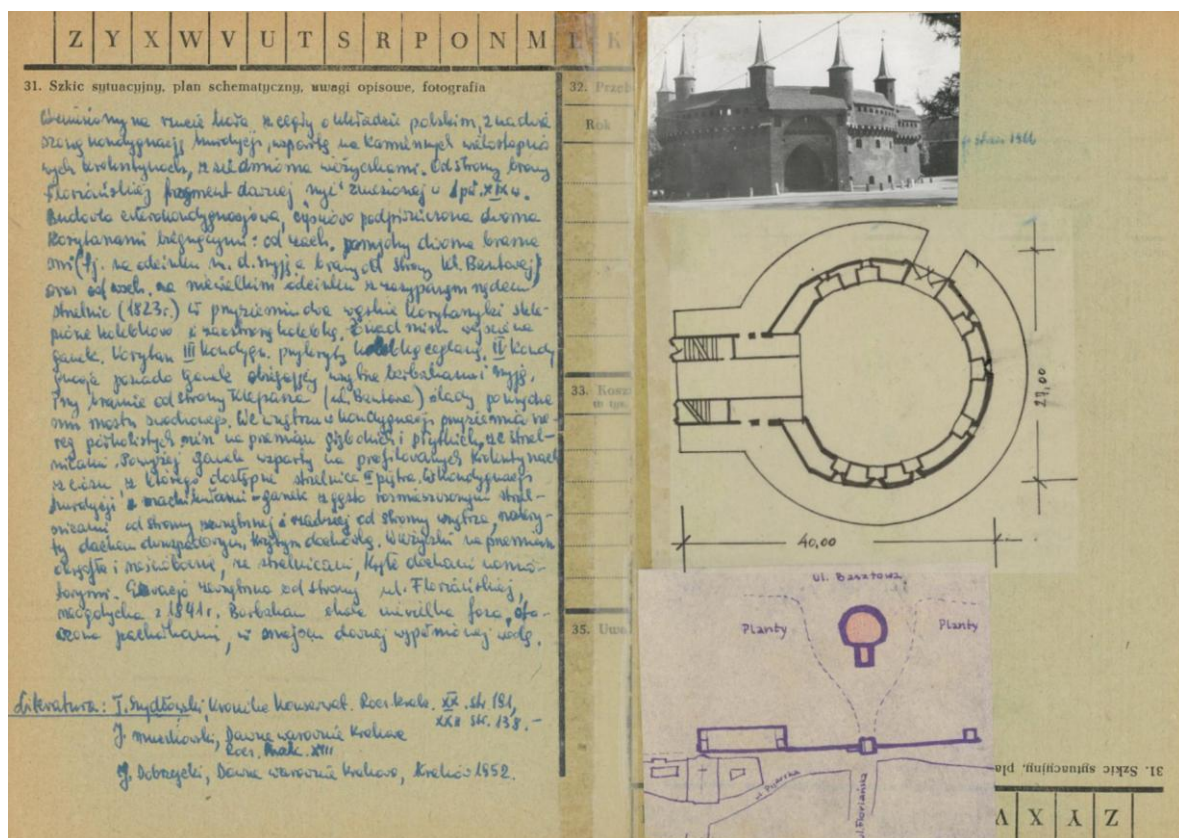 Z Y X W V U T S R P O N M L K
31. Szkic sytuacyjny, plan schematyczny, uwagi opisowe, fotografia
Wzniesiony na rzucie koła z cegły o układzie polskim, z nadwie
szoną kondygnacją hurdycji, wspartą na kamiennych wielostopnio
wych kroksztynach, z siedmioma wieżyczkami. Od strony bramy
Floriańskiej fragment dawnej szyi zniesionej w 1 poł. XIX w.
Budowla czterokondygnacjowa, częściowo podpiwniczona dwoma
korytarzami biegnącymi: od zach. pomiędzy dwoma brama
mi (tj. na odcinku m. d. szyją a bramą od strony ul. Basztowej)
oraz od wsch. na niewielkim odcinku z zasypanym rzędem
strzelnic (1823 r.) W przyziemiu dwa wąskie korytarzyki skle-
pione kolebkowo i zaostrzoną kolebką. Ponad nimi wejście na
ganek. Korytarz III kondygn. przykryty kolebką ceglaną. II kondy
gnacja posiada ganek obiegający wnętrze barbakanu i szyję.
Przy bramie od strony Kleparza (ul. Basztowa) ślady po wycho
mostu zwodzonego. We wnętrzu w kondygnacji przyziemia sze-
reg półkolistych nisz na przemian głębokich i płytkich, ze strzel-
nicami. Powyżej ganek wsparty na profilowanych kroksztynach
z ciosu, z którego dostępne strzelnice II piętra. W kondygnacji
hurdycji z machikułami - ganek z gęsto rozmieszczonymi strzel-
nicami od strony zewnętrznej i rzadziej od strony wnętrza, nakry-
ty dachem dwuspadowym, krytym dachówką. Wieżyczki na przemian
okrągłe i sześcioboczne, ze strzelnicami, kryte dachami namio-
towymi. Elewacja zewnętrzna od strony ul. Floriańskiej,
neogotycka z 1841 r. Barbakan okala niewielka fosa, oto-
czona pachołkami, w miejscu dawnej wypełnionej wodą.
Literatura: T. Szydłowski, Kronika Konserwat. Rocz. krak. XX str 191,
XXII str. 138.-
J. Muczkowski, Dawne warownie Krakowa
Rocz. Krak. XIII
J. Dobrzycki, Dawne warownie Krakowa, Kraków 1952.
32. Przeb
Rok
33. Kosz
w tys.
35. Uwa
1966
27,00
40,00
ul. Basztowa
Planty
Planty
ul. Pijarska
ul. Floriańska
31. Szkic sytuacyjny, pla
Z Y X V